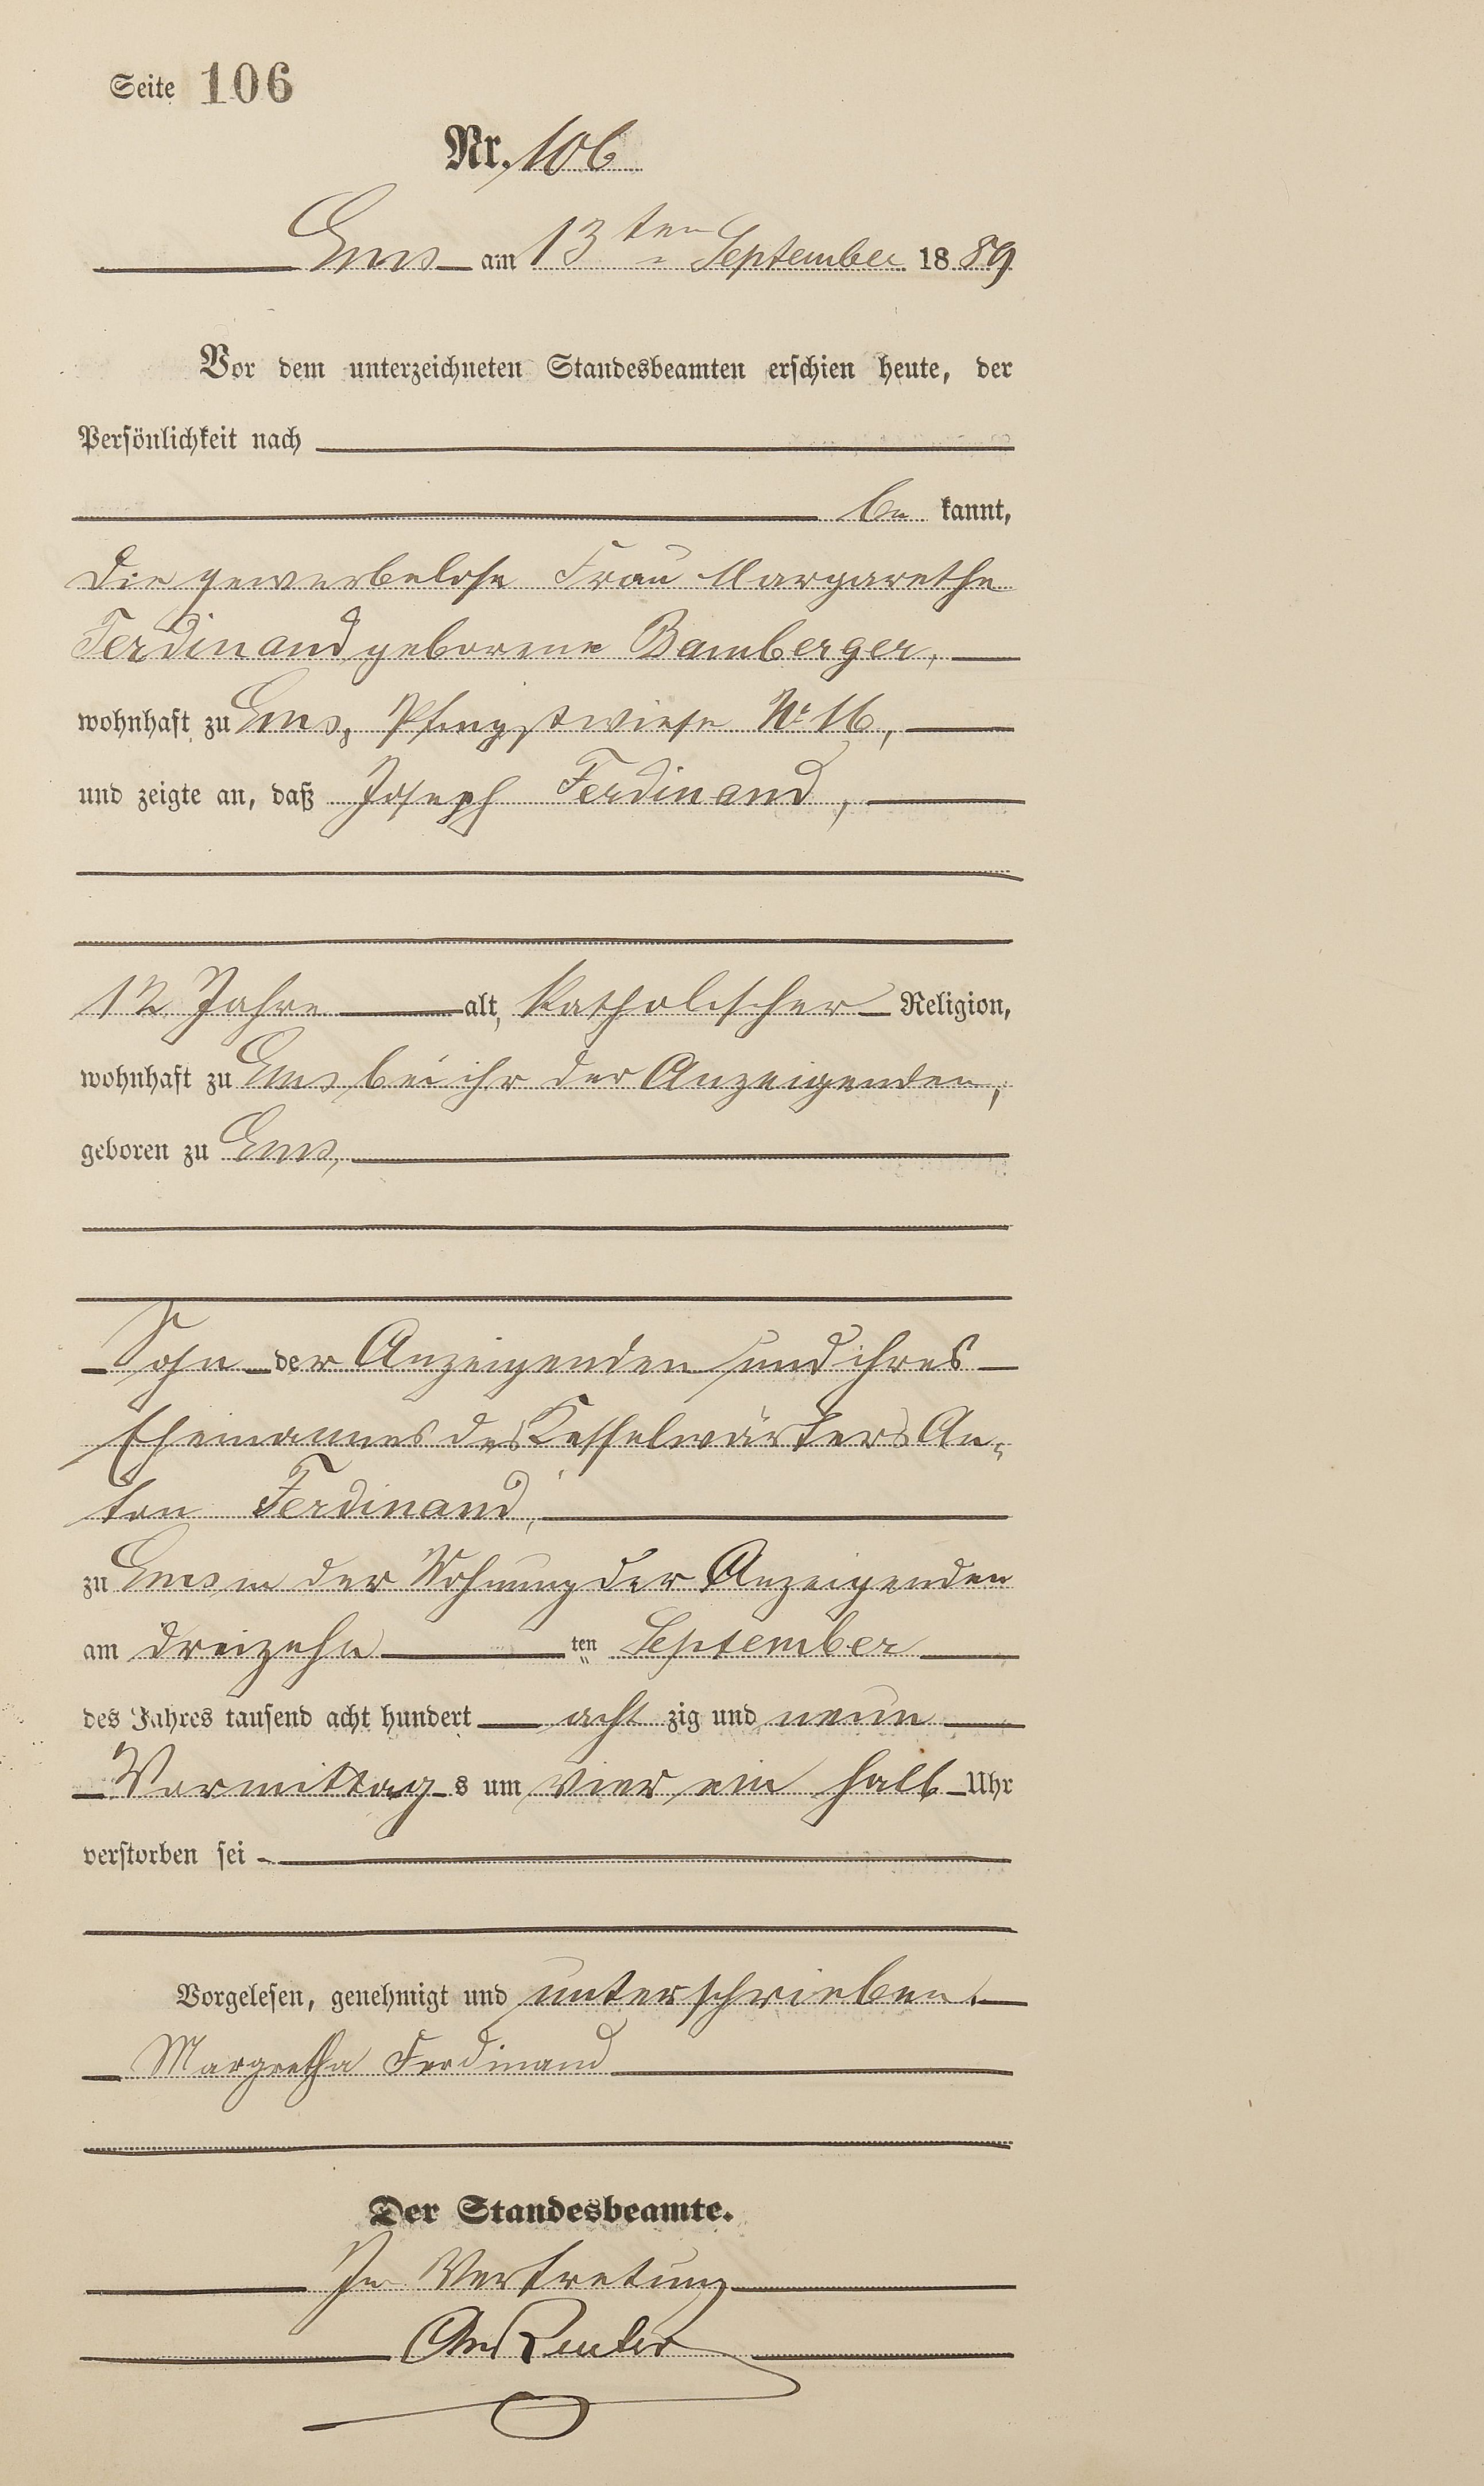 Seite 106
Nr. 106
Ems am 13ten September 1889
Vor dem unterzeichneten Standesbeamten erschien heute, der
Persönlichkeit nach
be kannt,
die gewerbelose Frau Margarethe
Ferdinand geborene Bamberger,
wohnhaft zu Ems, Pfingstwiese No 16,
und zeigte an, daß Joseph Ferdinand,
12 Jahre alt, katholischer Religion,
wohnhaft zu Ems bei ihr der Anzeigenden,
geboren zu Ems,
Sohn der Anzeigenden und ihres
Ehemannes des Kesselwärters An-
ton Ferdinand,
zu Ems in der Wohnung der Anzeigenden
am dreizehn ten September
des Jahres tausend acht hundert acht zig und neun
Vormittag s um vier ein halb Uhr
verstorben sei
Vorgelesen, genehmigt und unterschrieben.
Margretha Ferdinand
Der Standesbeamte.
In Vertretung